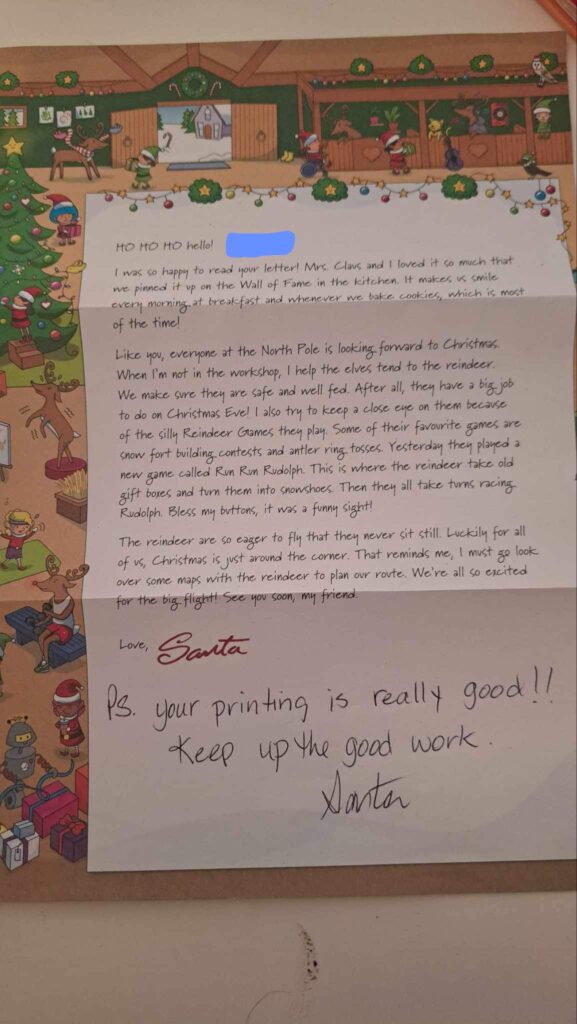 HO HO HO hello!
I was so happy to read your letter! Mrs. Claus and I loved it so much that
we pinned it up on the Wall of Fame in the kitchen. It makes us smile
every morning at breakfast and whenever we bake cookies, which is most
of the time!
Like you, everyone at the North Pole is looking forward to Christmas.
When I'm not in the workshop, I help the elves tend to the reindeer.
We make sure they are safe and well fed. After all, they have a big job
to do on Christmas Eve! I also try to keep a close eye on them because
of the silly Reindeer Games they play. Some of their favourite games are
snow fort building contests and antler ring tosses. Yesterday they played a
new game called Run Run Rudolph. This is where the reindeer take old
gift boxes and turn them into snowshoes. Then they all take turns racing
Rudolph. Bless my buttons, it was a funny sight!
The reindeer are so eager to fly that they never sit still. Luckily for all
of us, Christmas is just around the corner. That reminds me, I must go look
over some maps with the reindeer to plan our route. We're all so excited
for the big flight! See you soon, my friend.
Love, Santa
Ps. your printing is really good!!
Keep up the good work.
Santa